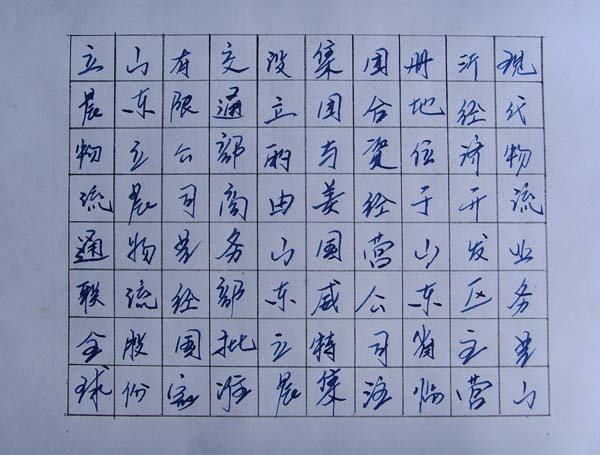 立晨物流通联全球
山东立晨物流股份
有限公司是经国家
交通部商务部批准
设立的由山东立晨
集团与美国威特集
团合资经营公司注
册地位于山东省临
沂经济开发区主营
现代物流业务是山